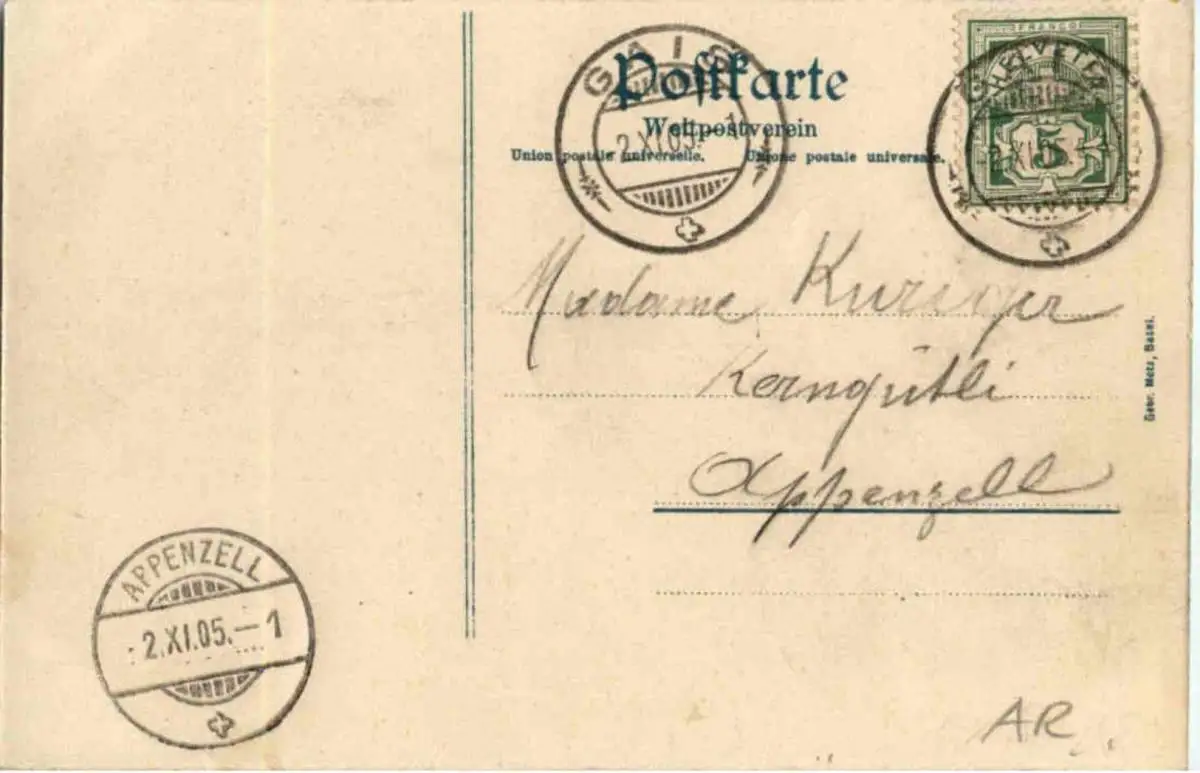 FRANCO
HELVETIA
5
GAIS
2.XI.05.-1
Postkarte
Weltpostverein
Union postale universelle. Unione postale universale.
2.XI.05.
Madame
Korngütli
Appenzell
Gebr. Metz, Basel.
APPENZELL
2.XI.05.-1
AR